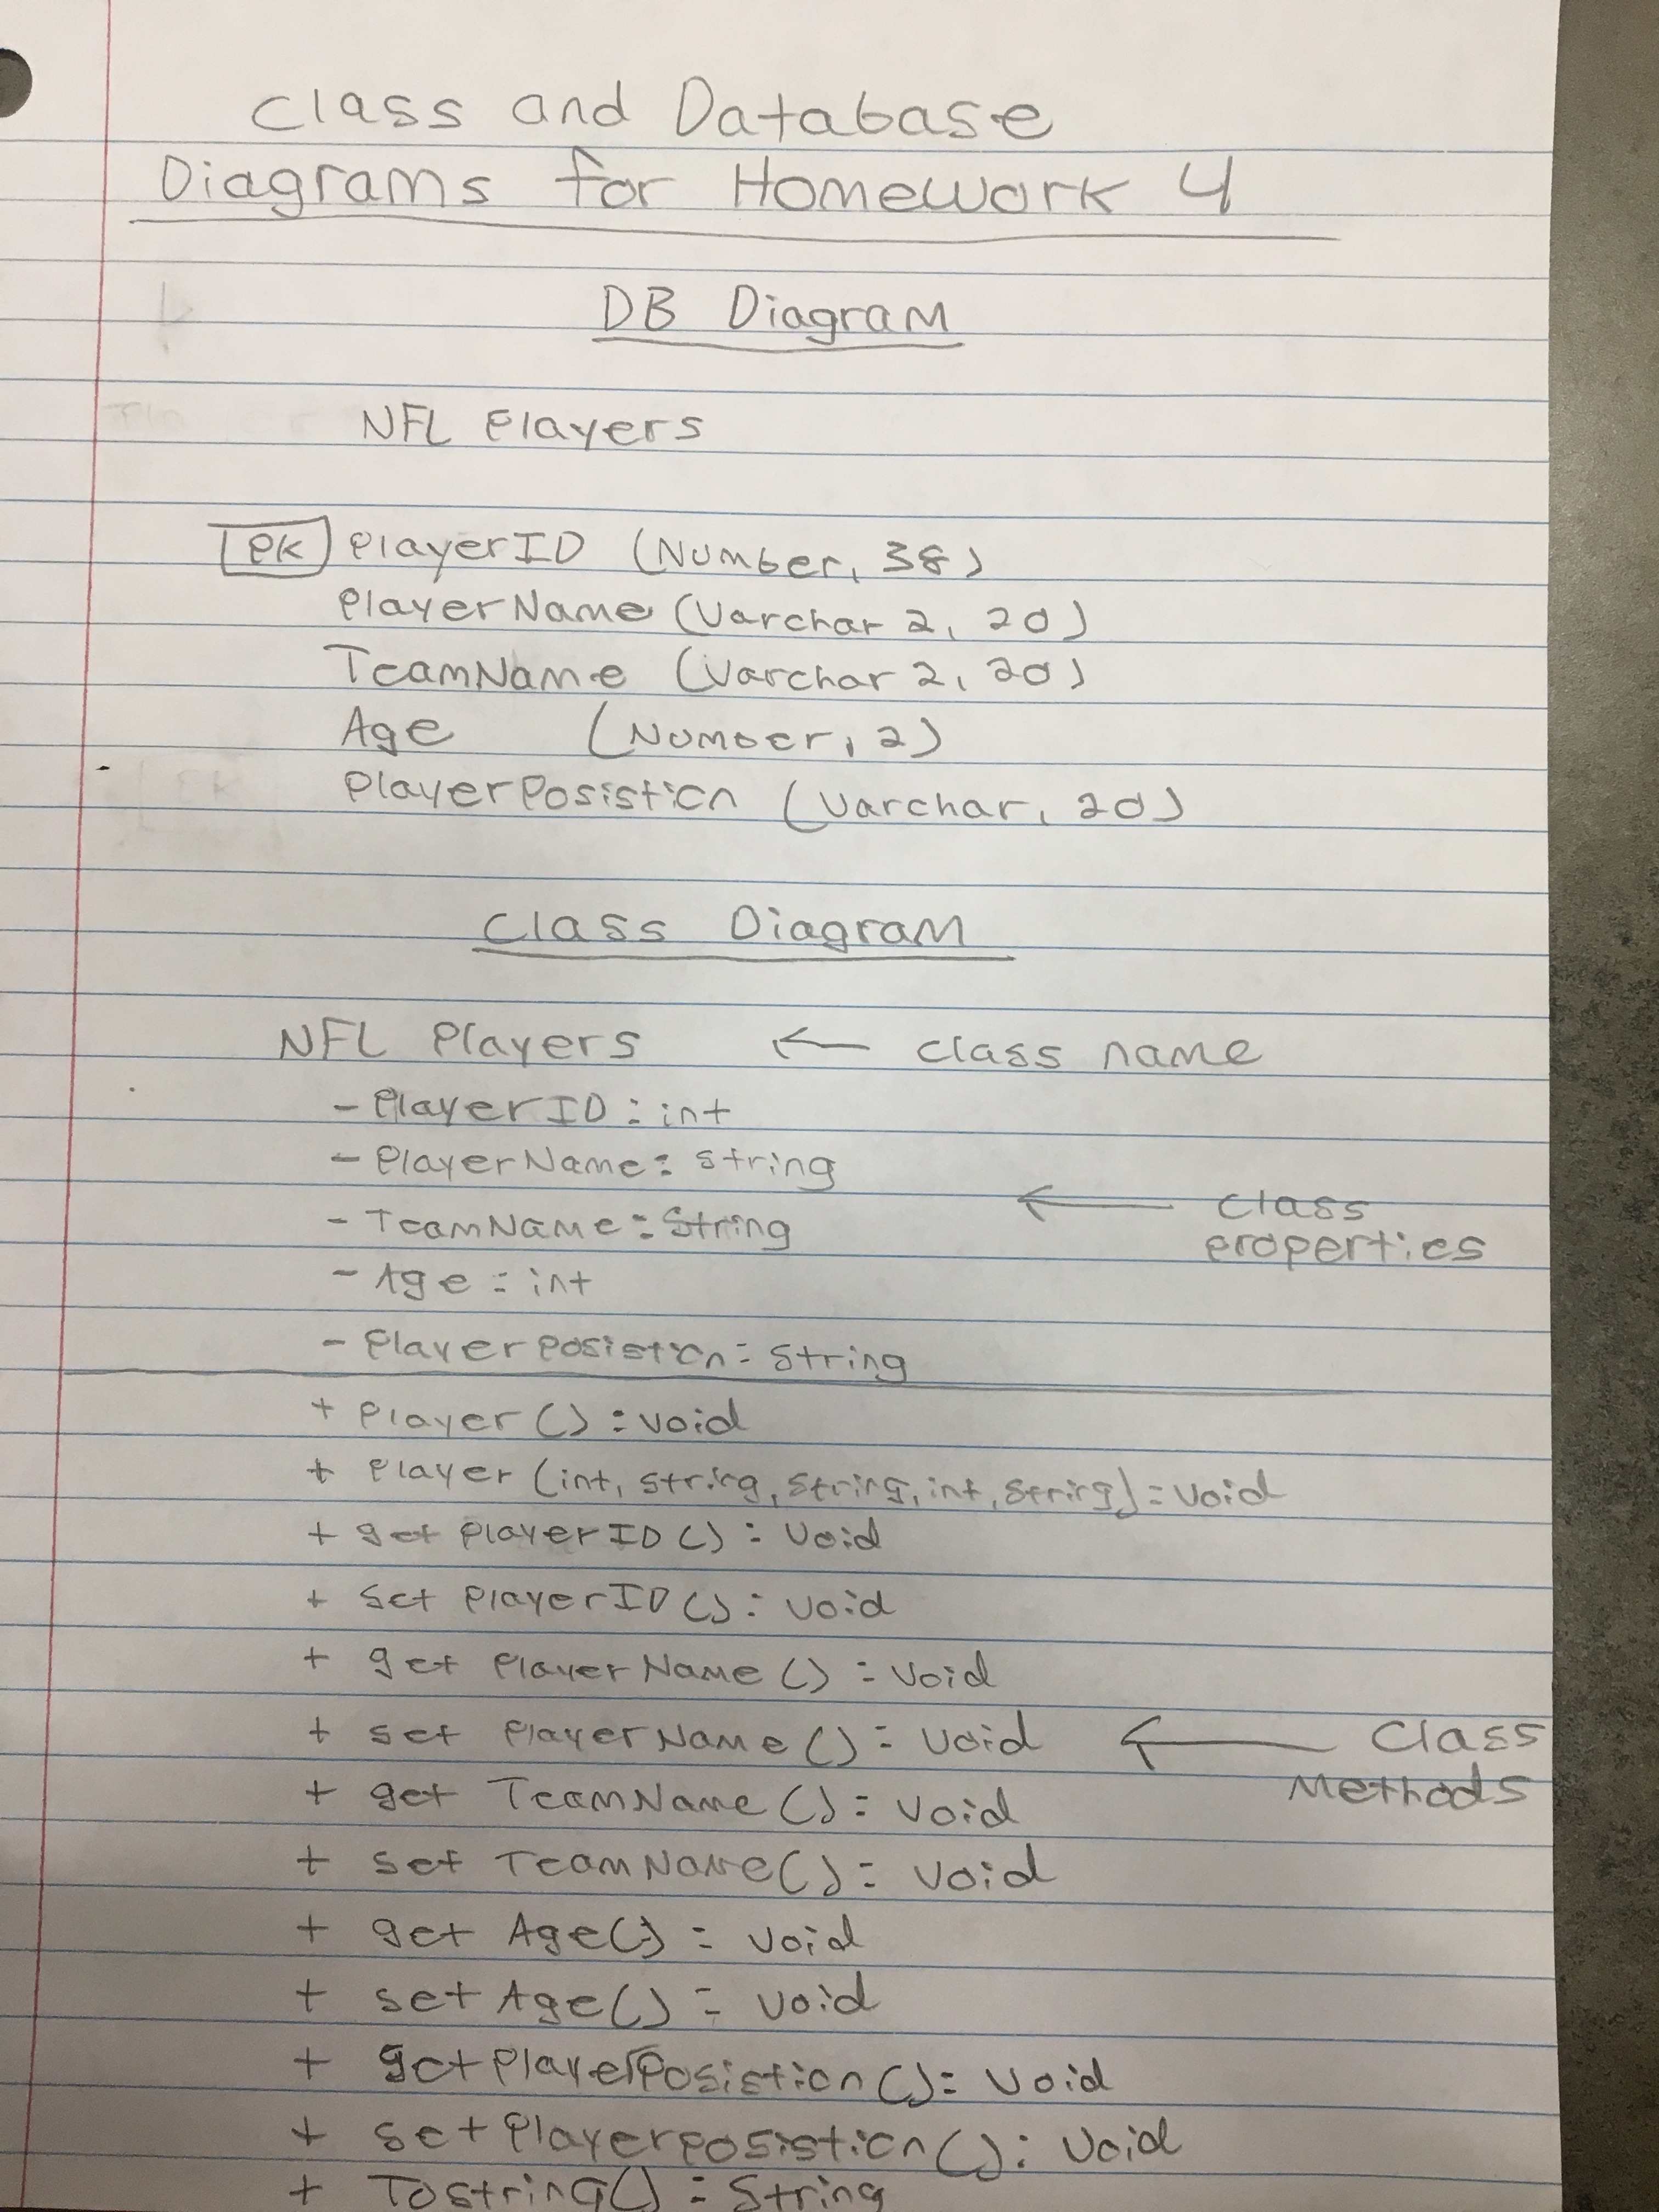 Class and Database
Diagrams for Homework 4
DB Diagram
NFL Players
PK PlayerID (Number, 38)
PlayerName (Varchar 2, 20)
TeamName (Varchar 2, 20)
Age (Number, 2)
PlayerPosistion (Varchar, 20)
Class Diagram
NFL Players ← class name
- PlayerID : int
- PlayerName : string
- TeamName : String
← class properties
- Age : int
- PlayerPosistion : String
+ Player () : void
+ Player (int, string, string, int, string) : void
+ get PlayerID () : void
+ set PlayerID () : void
+ get PlayerName () : void
+ set PlayerName () : void ← Class Methods
+ get TeamName () : void
+ set TeamName () : void
+ get Age () : void
+ set Age () : void
+ getPlayerPosistion () : void
+ setPlayerPosistion () : void
+ Tostring () : String